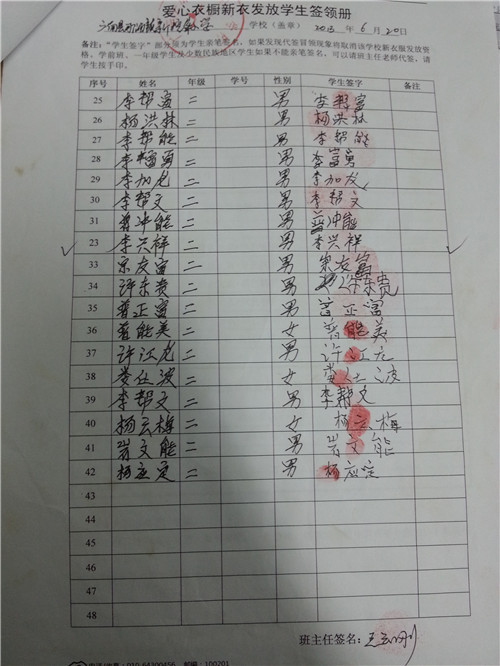 爱心衣橱新衣发放学生签领册
学校（盖章） 2013年6月20日
备注：“学生签字”部分须为学生亲笔签名，如果发现代签冒领现象将取消该学校新衣服发放资
格，学前班、一年级学生及少数民族地区学生如果不能亲笔签名，可以请班主任老师代签，请
学生按手印。
序号 姓名 年级 学号 性别 学生签字 备注
25 李帮富 二 男 李帮富
26 杨洪林 二 男 杨洪林
27 李帮能 二 男 李帮能
28 李富勇 二 男 李富勇
29 李加龙 二 男 李加龙
30 李帮文 二 男 李帮文
31 普冲能 二 男 普冲能
23 李兴祥 二 男 李兴祥
33 宗友富 二 男 宗友富
34 许东贵 二 男 许东贵
35 普正富 二 男 普正富
36 普能美 二 女 普能美
37 许江龙 二 男 许江龙
38 娄仕波 二 女 娄仕波
39 李帮文 二 男 李帮文
40 杨云梅 二 女 杨云梅
41 岩文能 二 男 岩文能
42 杨应定 二 男 杨应定
43
44
45
46
47
48
班主任签名：
010-64300856 邮编：100201